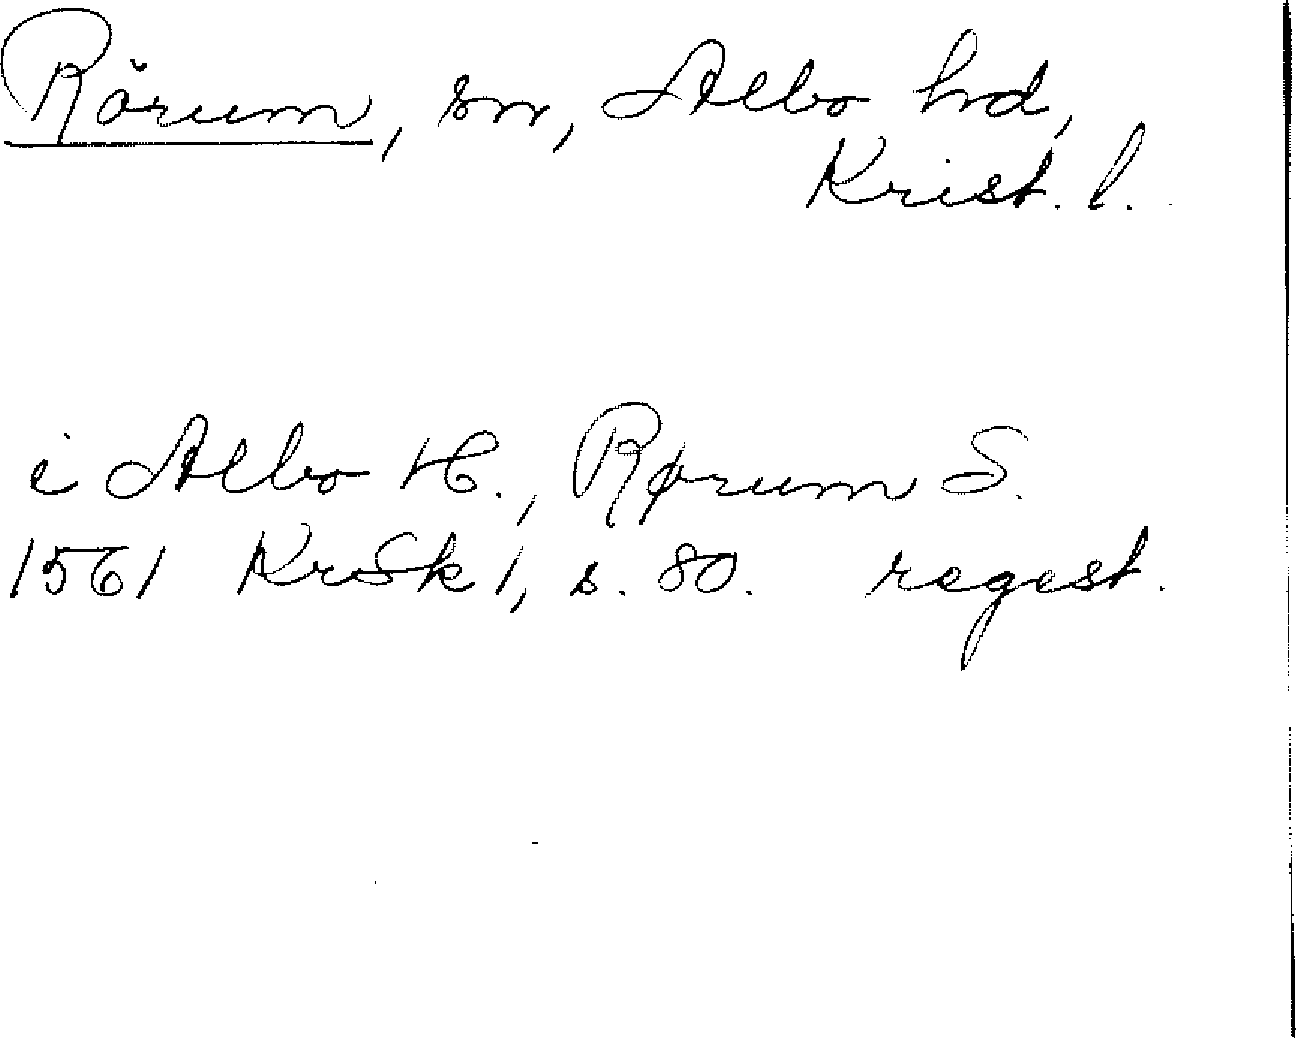 Rörum, sn, Albo hd,
Krist. l.
i Albo H., Rørum S.
1561 KrSk 1, s. 80. regest.